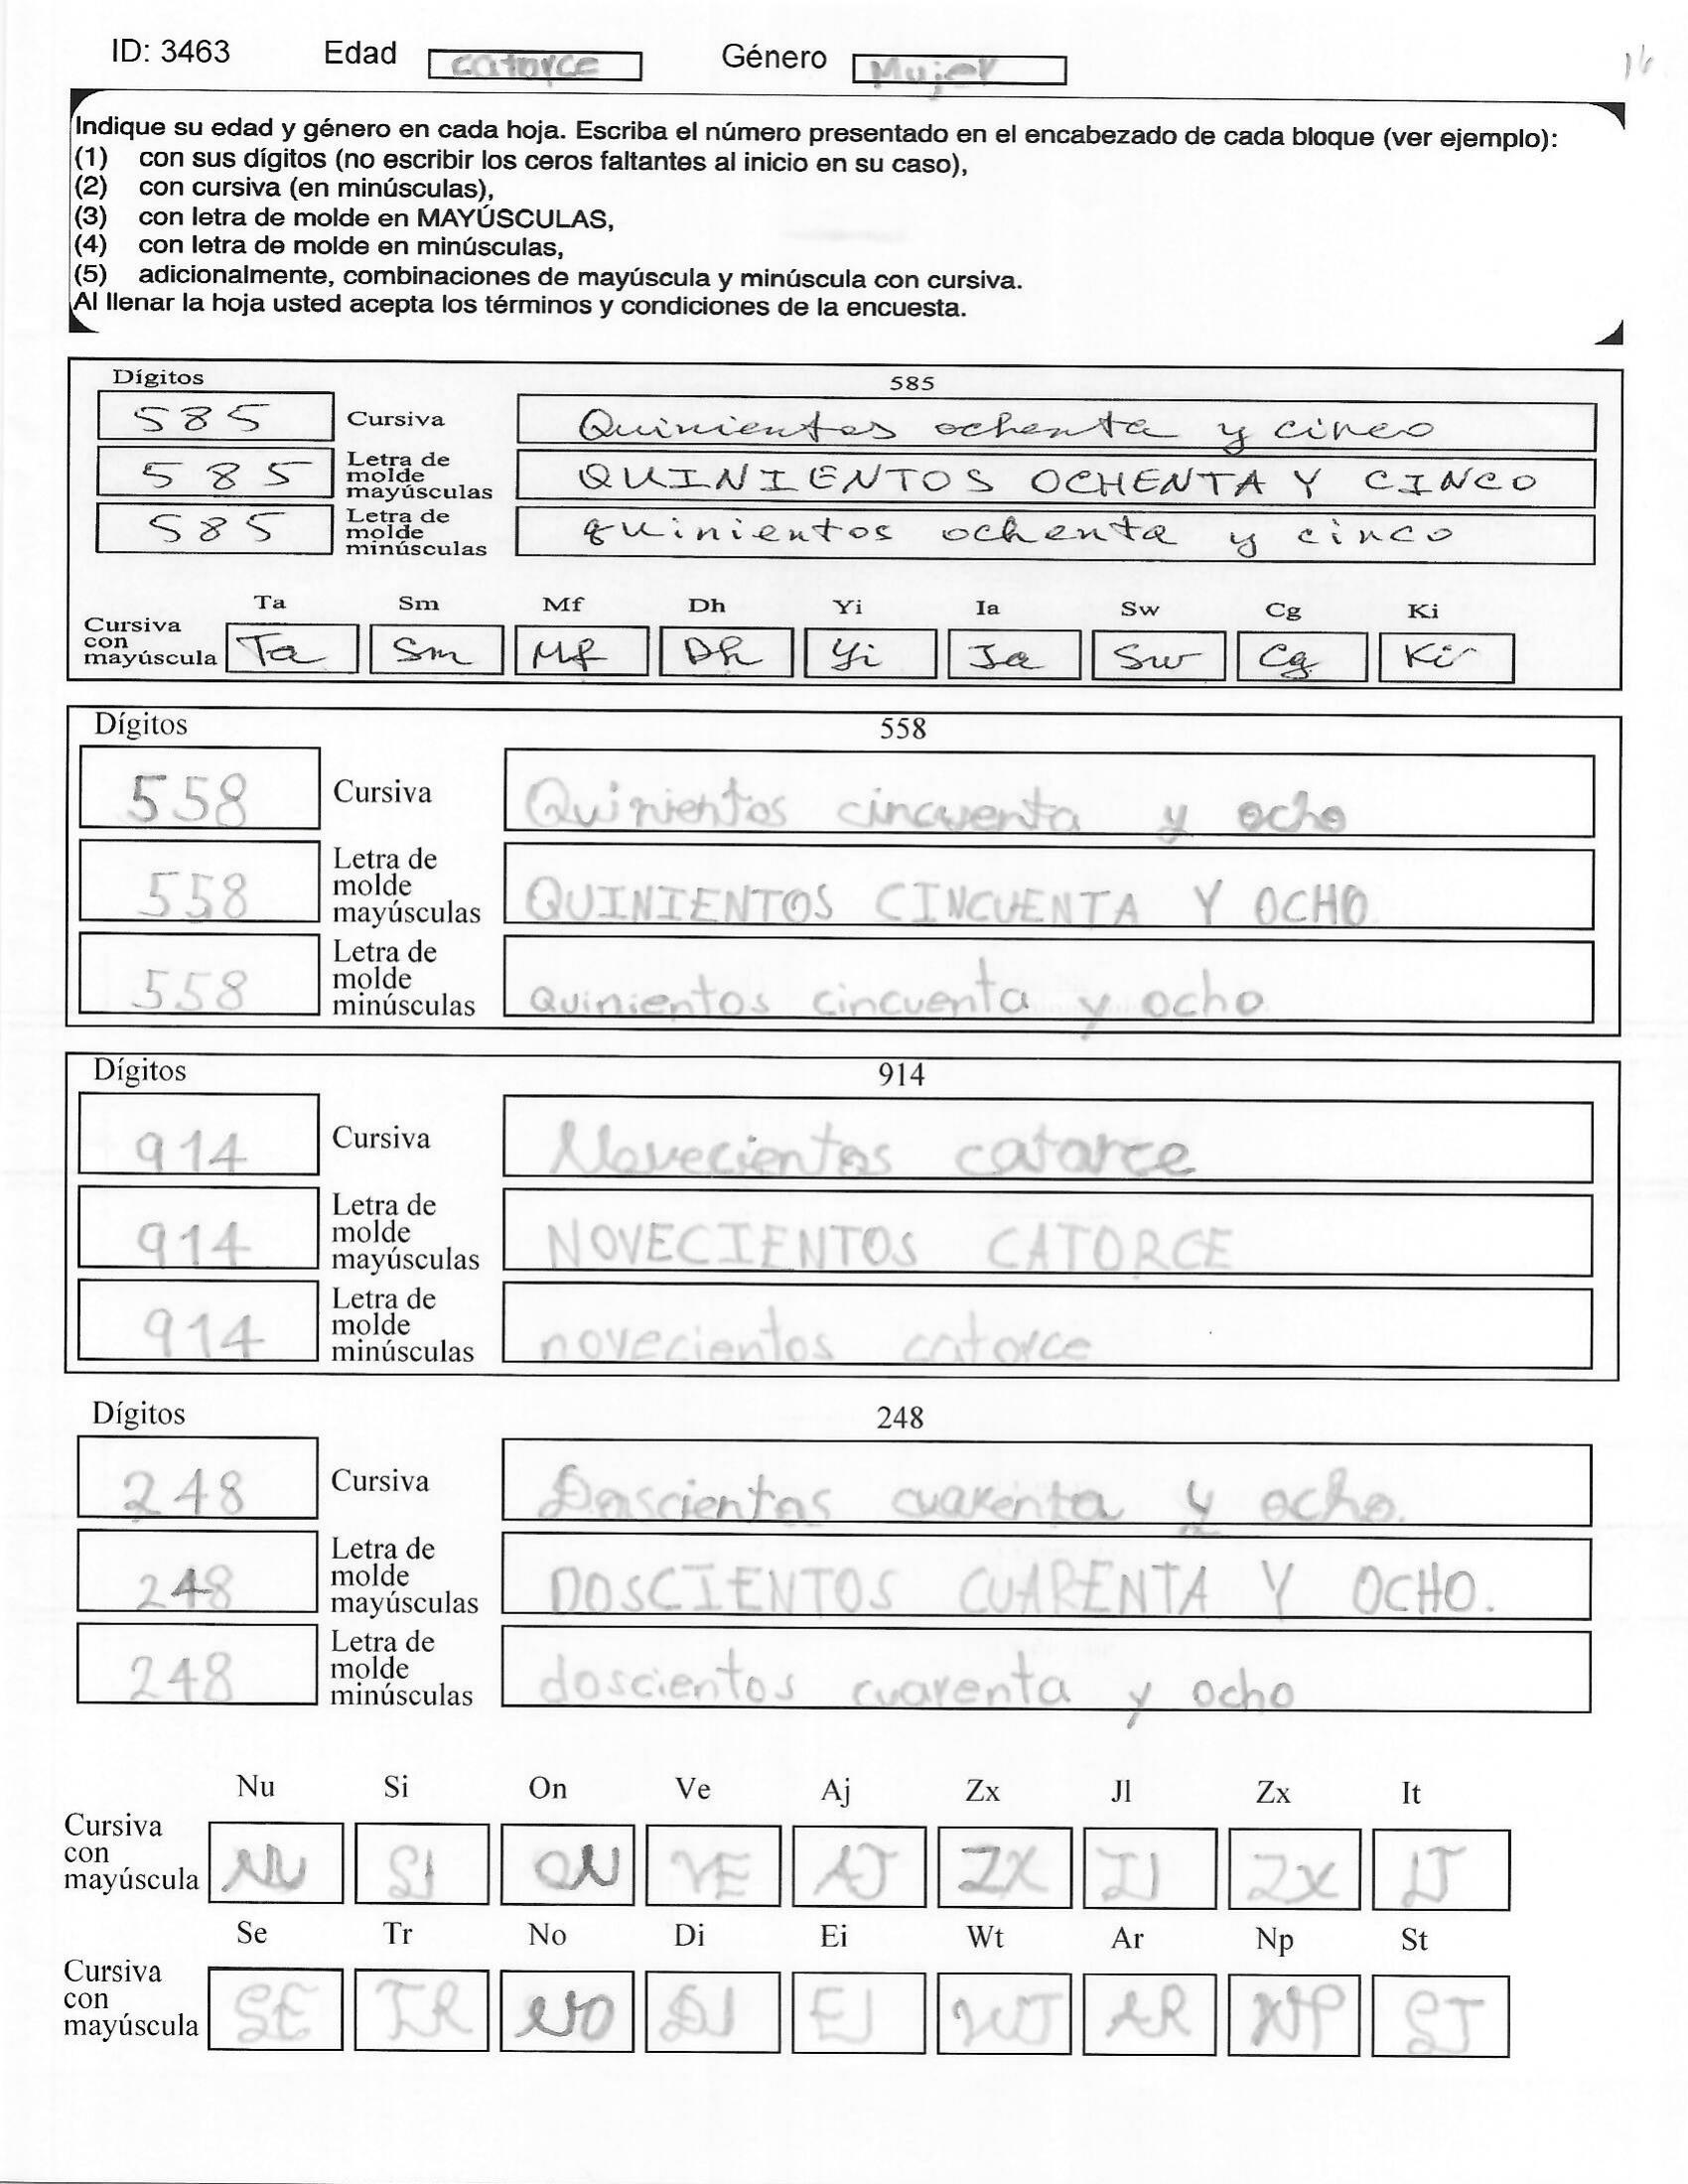 ID: 3463 Edad catorce Género Mujer
Indique su edad y género en cada hoja. Escriba el número presentado en el encabezado de cada bloque (ver ejemplo):
(1) con sus dígitos (no escribir los ceros faltantes al inicio en su caso),
(2) con cursiva (en minúsculas),
(3) con letra de molde en MAYÚSCULAS,
(4) con letra de molde en minúsculas,
(5) adicionalmente, combinaciones de mayúscula y minúscula con cursiva.
Al llenar la hoja usted acepta los términos y condiciones de la encuesta.
Dígitos 585
585 Cursiva Quinientos ochenta y cinco
585 Letra de molde mayúsculas QUINIENTOS OCHENTA Y CINCO
585 Letra de molde minúsculas quinientos ochenta y cinco
Ta Sm Mf Dh Yi Ia Sw Cg Ki
Cursiva con mayúscula Ta Sm Mf Dh Yi Ia Sw Cg Ki
Dígitos 558
558 Cursiva Quinientos cincuenta y ocho
558 Letra de molde mayúsculas QUINIENTOS CINCUENTA Y OCHO
558 Letra de molde minúsculas quinientos cincuenta y ocho
Dígitos 914
914 Cursiva Novecientos catorce
914 Letra de molde mayúsculas NOVECIENTOS CATORCE
914 Letra de molde minúsculas novecientos catorce
Dígitos 248
248 Cursiva Doscientos cuarenta y ocho.
248 Letra de molde mayúsculas DOSCIENTOS CUARENTA Y OCHO.
248 Letra de molde minúsculas doscientos cuarenta y ocho
Nu Si On Ve Aj Zx Jl Zx It
Cursiva con mayúscula NU SI ON VE AJ ZX ZX
Se Tr No Di Ei Wt Ar Np St
Cursiva con mayúscula SE TR NO DI EI WT AR NP ST